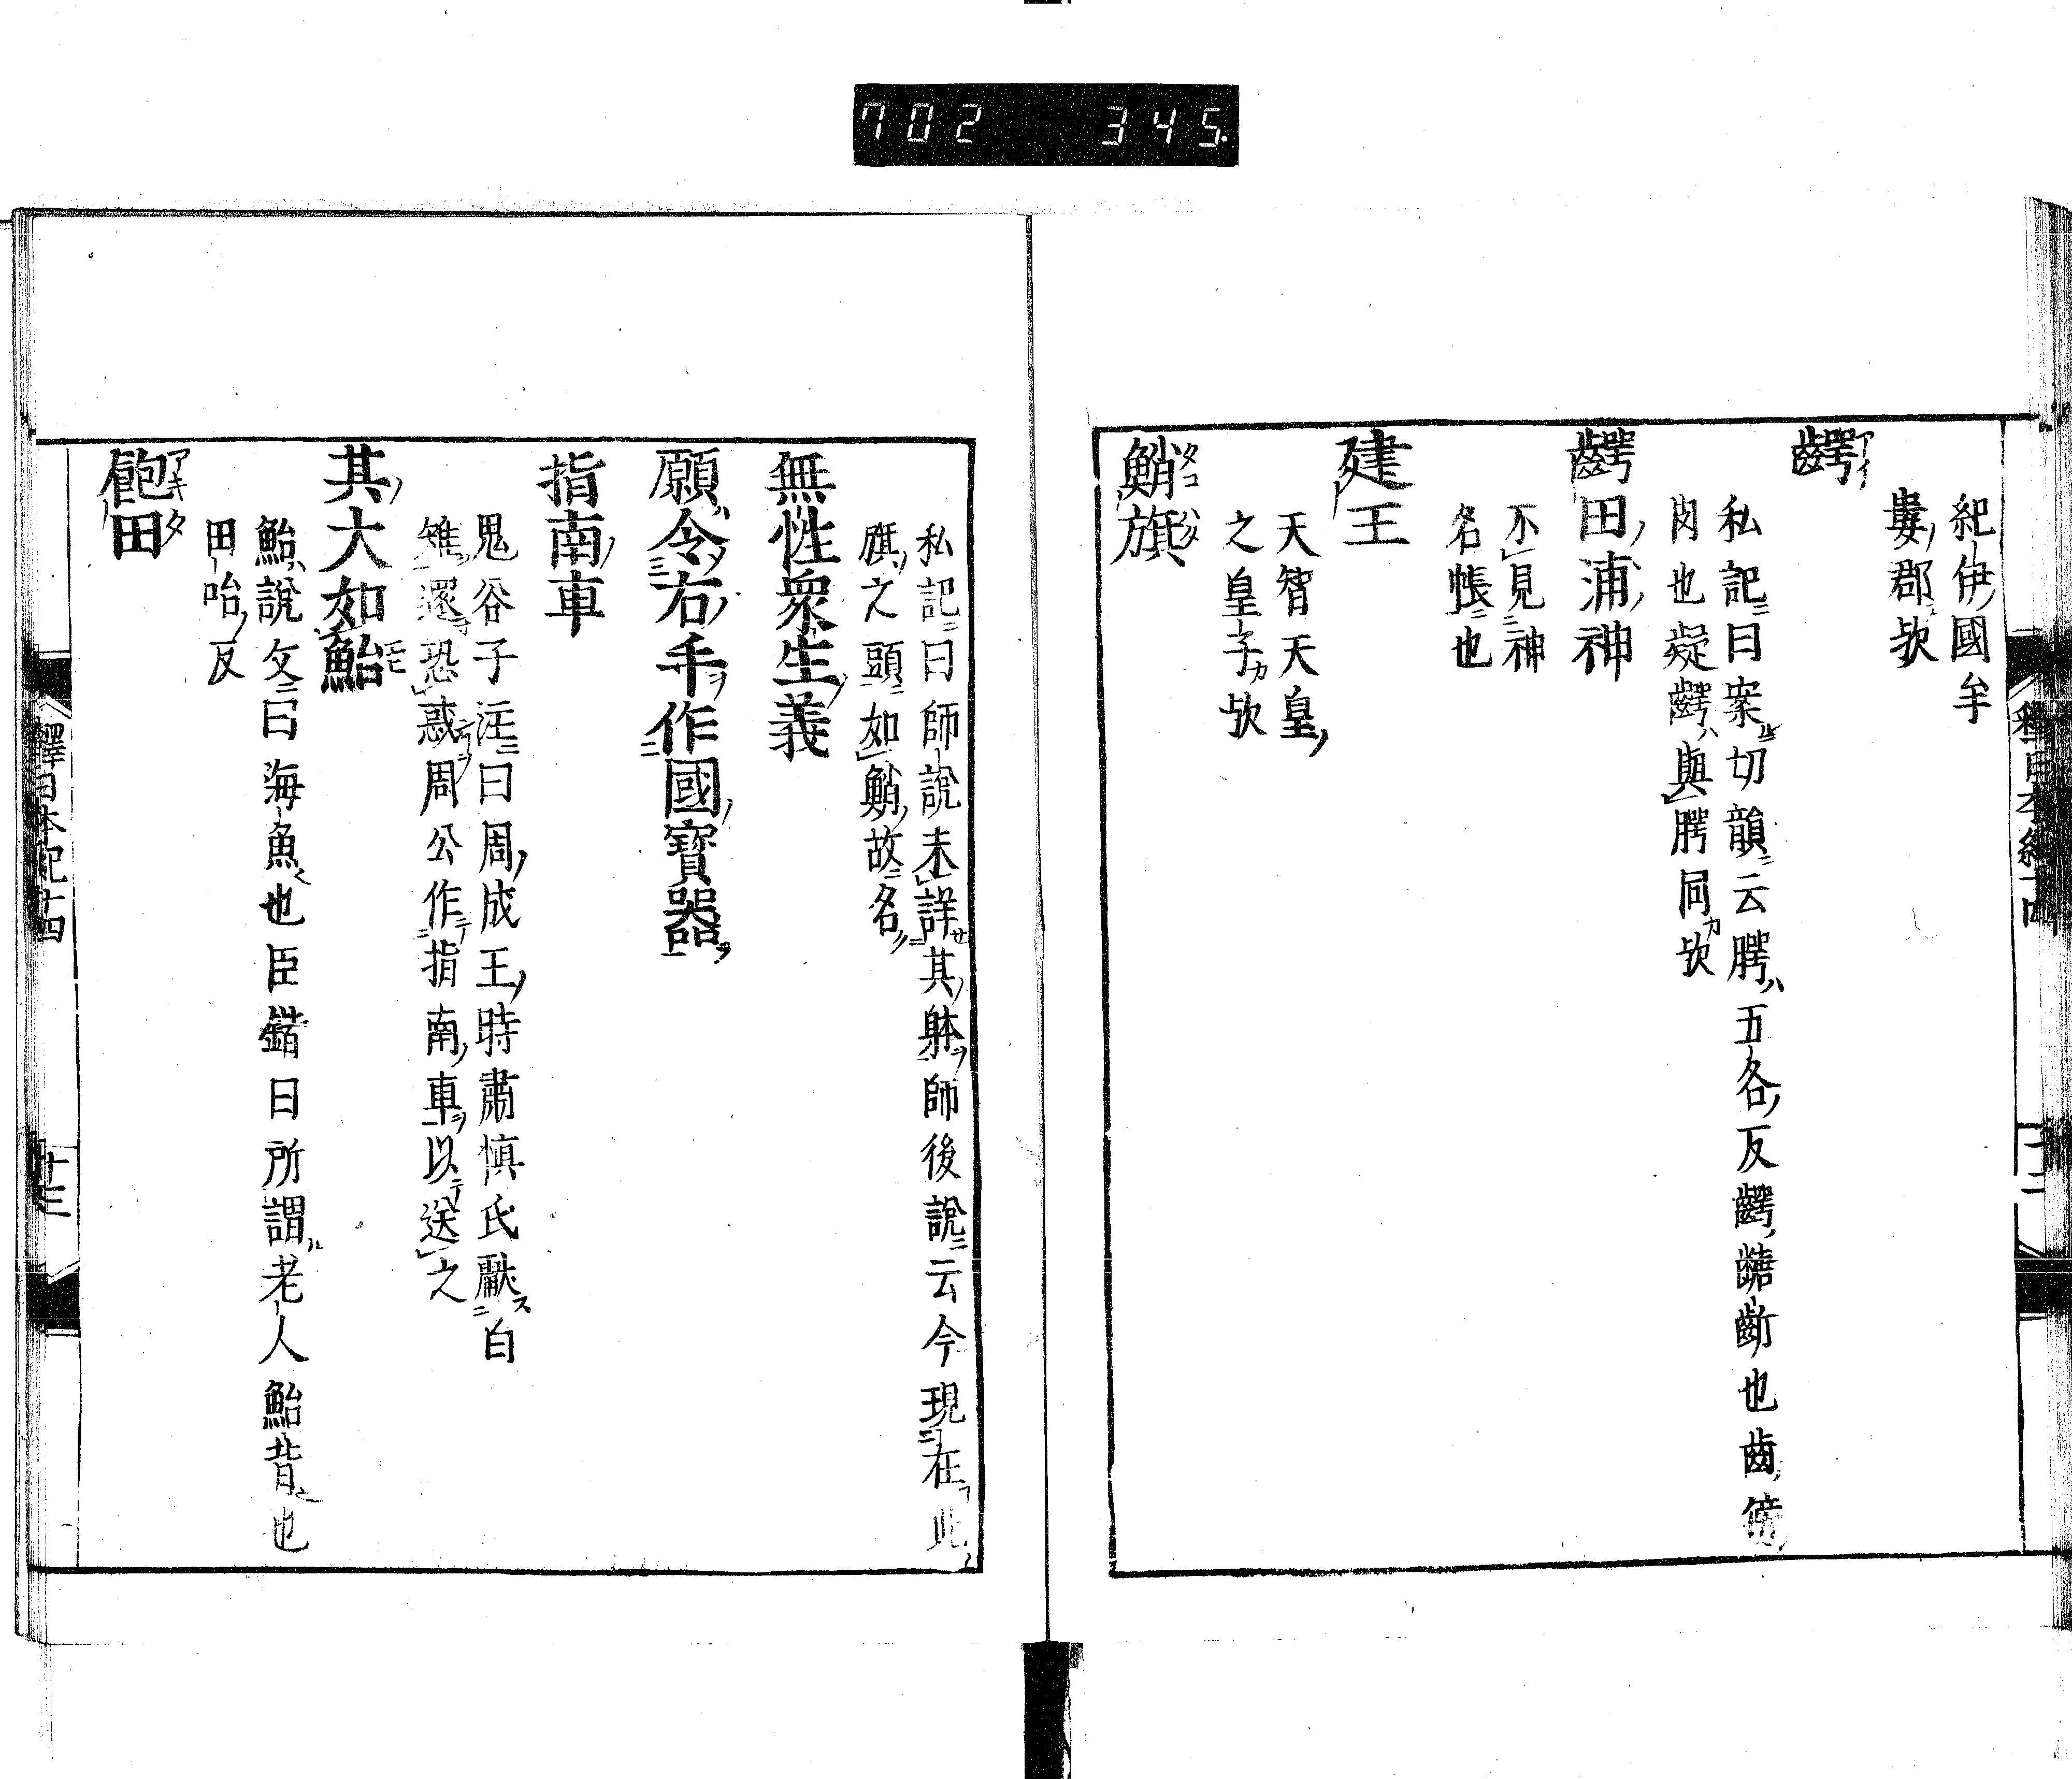 702 345
紀伊國牟
婁郡歟
齶
私記曰案切韻云腭五各反齶齶齗也齒
肉也疑齶與腭同歟
齶田浦神
不見神
名帳也
建王
天智天皇
之皇子歟
鮹旗
私記曰師說未詳其躰師後說云今現在此
旗之頭如鮹故名
無性衆生義
願令右手作國寶器
指南車
鬼谷子注曰周成王時肅慎氏獻白
雉還恐惑周公作指南車以送之
其大如鮐
鮐說文曰海魚也臣鍇曰所謂老人鮐背也
田咍反
飽田
釋日本紀十四
十三